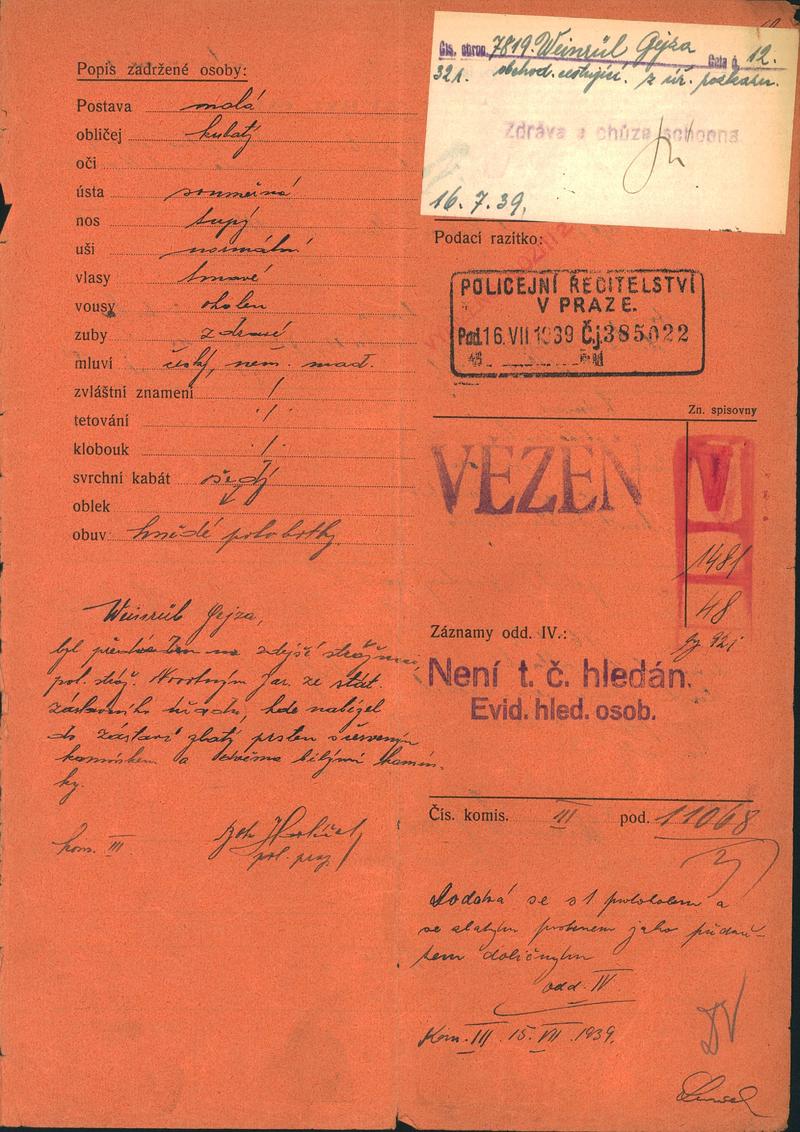 Popis zadržené osoby:
Postava malá
obličej kulatý
oči
ústa souměrná
nos tupý
uši normální
vlasy tmavé
vousy oholen
zuby zdravé
mluví česky, něm. maď.
zvláštní znamení /
tetování ·/·
klobouk ·/·
svrchní kabát šedý
oblek
obuv hnědé polobotky
Weinrüb Gejza,
byl na zdejší strážnici
pol. stráž. Novotným Jar. ze stát.
zástavního úřadu, kde nabízel
do zástavy zlatý prsten s červeným
kamínkem a dvěma bílými kamín-
ky.
kom. III
pol. prap.
Čís. ohron. 7819. Weinrüb Gejza Cela č. 12.
321. obchod. cestující. z úř. rozkazu.
Zdráva a chůze schopna
16. 7. 39.
Podací razítko:
POLICEJNÍ ŘEDITELSTVÍ
V PRAZE.
Pod. 16. VII 1939 Č.j. 385022
Zn. spisovny
VĚZEŇ
V
1481
48
Záznamy odd. IV.:
Není t. č. hledán.
Evid. hled. osob.
Čís. komis. III pod. 11068
Dodává se s 1 protokolem a
se zlatým prstenem jako předmě-
tem doličným
odd. IV
Kom. III 15. VII. 1939.